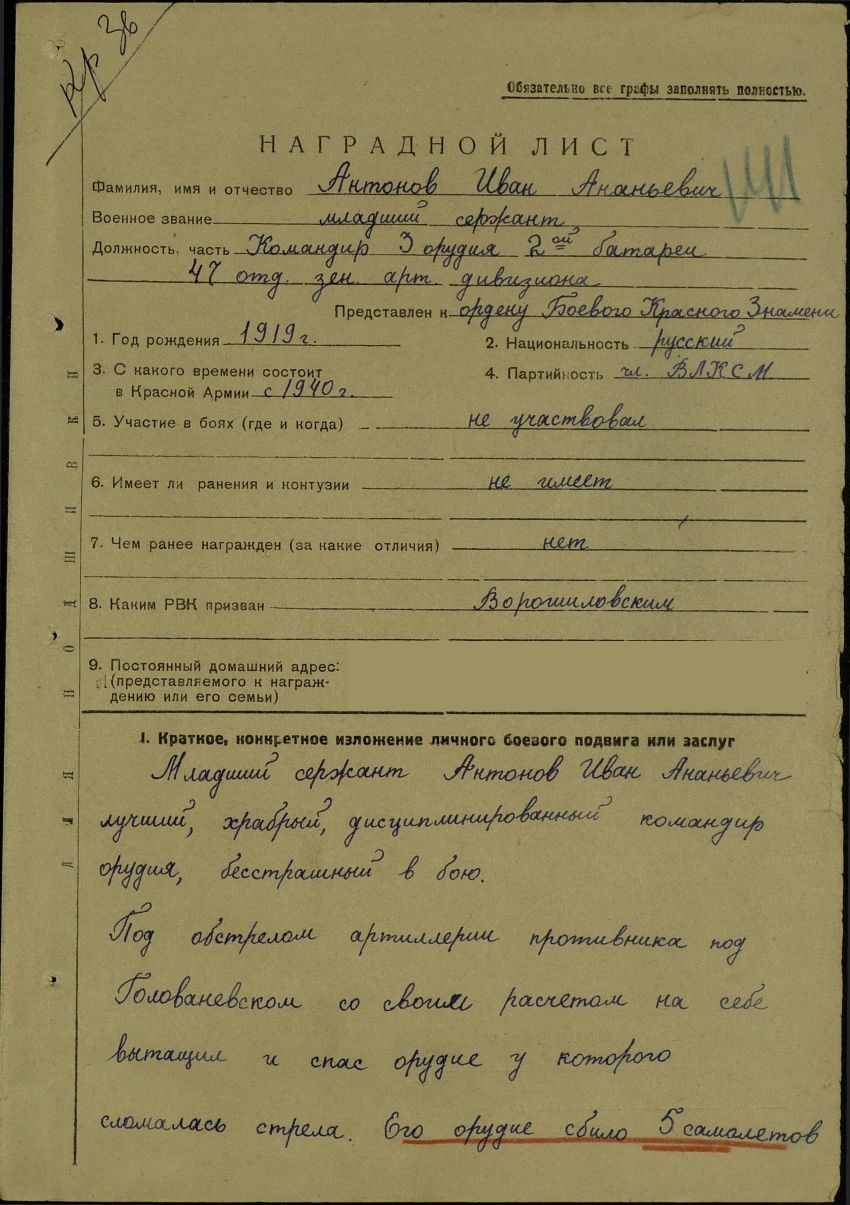 Кр 3в
Обязательно все графы заполнять полностью.
НАГРАДНОЙ ЛИСТ
Фамилия, имя и отчество Антонов Иван Ананьевич
Военное звание младший сержант
Должность, часть Командир 3 орудия 2ой батареи
47 отд. зен. арт. дивизиона
Представлен к ордену Боевого Красного Знамени
1. Год рождения 1919 г. 2. Национальность русский
3. С какого времени состоит 4. Партийность чл. ВЛКСМ
в Красной Армии с 1940 г.
5. Участие в боях (где и когда) не участвовал
6. Имеет ли ранения и контузии не имеет
7. Чем ранее награжден (за какие отличия) нет
8. Каким РВК призван Ворошиловским
9. Постоянный домашний адрес:
(представляемого к награж-
дению или его семьи)
I. Краткое, конкретное изложение личного боевого подвига или заслуг
Младший сержант Антонов Иван Ананьевич
лучший, храбрый, дисциплинированный командир
орудия, бесстрашный в бою.
Под обстрелом артиллерии противника под
Голованевском со своим расчетом на себе
вытащил и спас орудие у которого
сломалась стрела. Его орудие сбило 5 самолетов